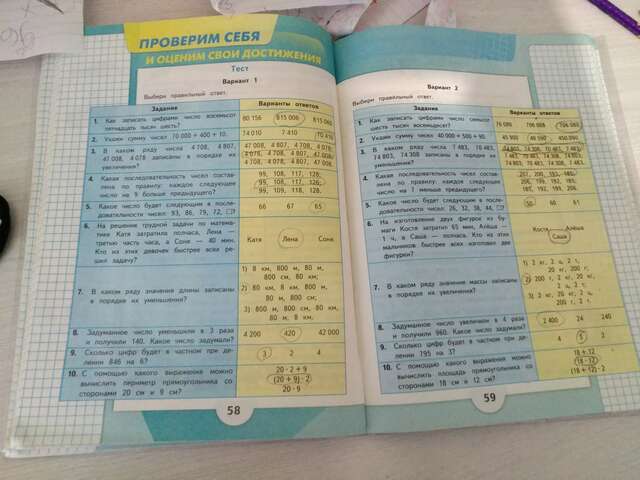 ПРОВЕРИМ СЕБЯ
И ОЦЕНИМ СВОИ ДОСТИЖЕНИЯ
Тест
Вариант 1
Выбери правильный ответ.
Задания
Варианты ответов
1. Как записать цифрами число восемьсот
пятнадцать тысяч шесть?
80 156 815 006 815 060
2. Укажи сумму чисел 70 000 + 400 + 10.
74 010 7 410 70 410
3. В каком ряду числа 4 708, 4 807,
47 008, 4 078 записаны в порядке их
увеличения?
47 008, 4 807, 4 708, 4 078;
4 078, 4 708, 4 807, 47 008;
4 708, 4 078, 4 807, 47 008.
4. Какая последовательность чисел состав-
лена по правилу: каждое следующее
число на 9 больше предыдущего?
99, 108, 117, 128;
99, 108, 117, 126;
99, 109, 118, 127.
5. Какое число будет следующим в после-
довательности чисел: 93, 86, 79, 72, □?
66 67 65
6. На решение трудной задачи по матема-
тике Катя затратила полчаса, Лена —
третью часть часа, а Соня — 40 мин.
Кто из этих девочек быстрее всех ре-
шил задачу?
Катя Лена Соня
7. В каком ряду значения длины записаны
в порядке их уменьшения?
1) 8 км, 800 м, 80 м,
800 см, 80 км;
2) 80 км, 8 км, 800 м,
80 м, 800 см;
3) 800 м, 800 см, 80 км,
80 м, 8 км.
8. Задуманное число уменьшили в 3 раза
и получили 140. Какое число задумали?
4 200 420 42 000
9. Сколько цифр будет в частном при де-
лении 846 на 6?
3 2 4
10. С помощью какого выражения можно
вычислить периметр прямоугольника со
сторонами 20 см и 9 см?
20 · 2 + 9
(20 + 9) · 2
20 · 9
58
Вариант 2
Выбери правильный ответ.
Задания
Варианты ответов
1. Как записать цифрами число семьсот
шесть тысяч восемьдесят?
76 080 706 008 706 080
2. Укажи сумму чисел 40 000 + 500 + 90.
45 900 40 590 450 090
3. В каком ряду числа 7 483, 70 483,
74 803, 74 308 записаны в порядке их
уменьшения?
74 803, 74 308, 70 483, 7 483;
4. Какая последовательность чисел состав-
лена по правилу: каждое следующее
число на 7 меньше предыдущего?
207, 200, 193, 186;
206, 199, 192, 185;
187, 192, 199, 206.
5. Какое число будет следующим в после-
довательности чисел: 26, 32, 38, 44, □?
50 60 61
6. На изготовление двух фигурок из бу-
маги Костя затратил 65 мин, Алёша —
1 ч, а Саша — полчаса. Кто из этих
мальчиков быстрее всех изготовил две
фигурки?
Костя Алёша
Саша
7. В каком ряду значения массы записаны
в порядке их увеличения?
1) 2 кг, 2 ц, 2 т,
20 кг, 200 г.
2) 200 г, 2 кг, 20 кг,
2 ц, 2 т.
3) 2 кг, 20 кг, 2 ц,
200 г, 2 т.
8. Задуманное число увеличили в 4 раза
и получили 960. Какое число задумали?
2 400 24 240
9. Сколько цифр будет в частном при
делении 195 на 3?
4
10. С помощью какого выражения можно
вычислить площадь прямоугольника со
сторонами 18 см и 12 см?
18 + 12
(18 · 12)
(18 + 12) · 2
59